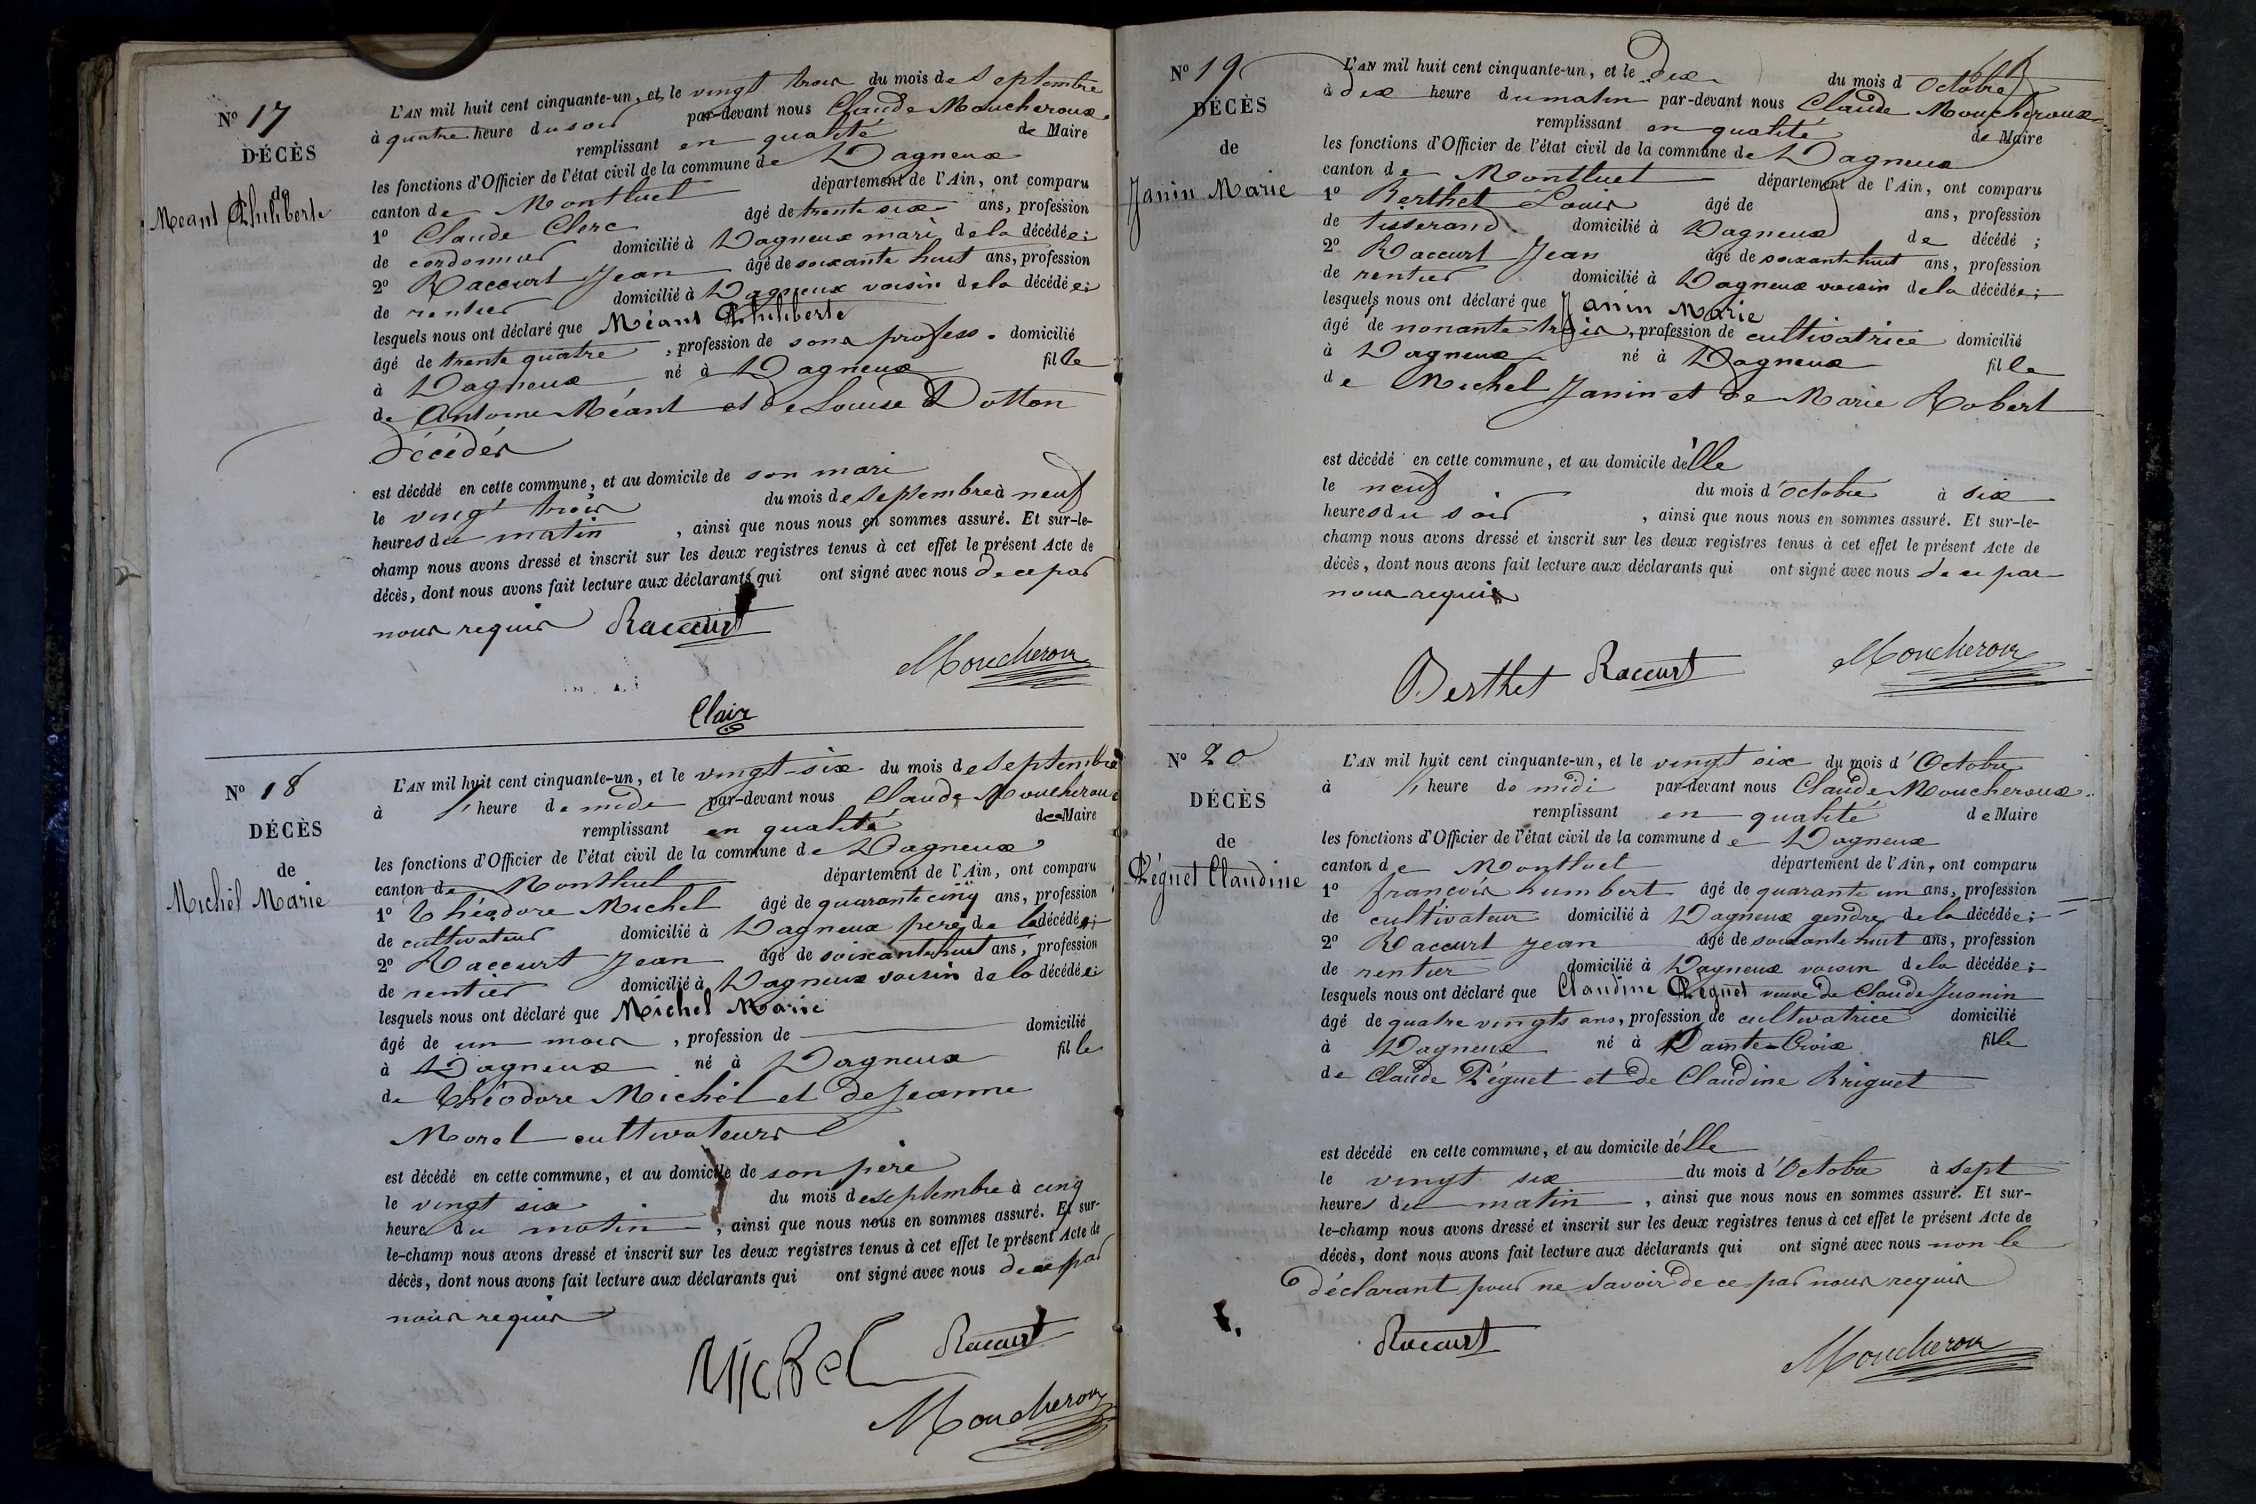 N° 17
DÉCÈS
de
Méant Philiberte
L'AN mil huit cent cinquante-un, et le vingt trois du mois de Septembre
à quatre heure du soir par-devant nous Claude Moucheroux
remplissant en qualité de Maire
les fonctions d'Officier de l'état civil de la commune de Dagneux
canton de Montluel département de l'Ain, ont comparu
1° Claude Clerc âgé de trente six ans, profession
de cordonnier domicilié à Dagneux mari de la décédée;
2° Raccurt Jean âgé de soixante huit ans, profession
de rentier domicilié à Dagneux voisin de la décédée;
lesquels nous ont déclaré que Méant Philiberte
âgé de trente quatre, profession de sans profess. domicilié
à Dagneux né à Dagneux fille
de Antoine Méant et de Louise Dotton
décédés
est décédé en cette commune, et au domicile de son mari
le vingt trois du mois de Septembre à neuf
heures du matin, ainsi que nous nous en sommes assuré. Et sur-le-
champ nous avons dressé et inscrit sur les deux registres tenus à cet effet le présent Acte de
décès, dont nous avons fait lecture aux déclarants qui ont signé avec nous de ce par
nous requis Raccurt
Moucheroux
Clair
N° 18
DÉCÈS
de
Michel Marie
L'AN mil huit cent cinquante-un, et le vingt-six du mois de Septembre
à heure de midi par-devant nous Claude Moucheroux
remplissant en qualité de Maire
les fonctions d'Officier de l'état civil de la commune de Dagneux
canton de Montluel département de l'Ain, ont comparu
1° Théodore Michel âgé de quarante cinq ans, profession
de cultivateur domicilié à Dagneux père de la décédée;
2° Raccurt Jean âgé de soixante huit ans, profession
de rentier domicilié à Dagneux voisin de la décédée;
lesquels nous ont déclaré que Michel Marie
âgé de un mois, profession de domicilié
à Dagneux né à Dagneux fille
de Théodore Michel et de Jeanne
Morel cultivateurs
est décédé en cette commune, et au domicile de son père
le vingt six du mois de Septembre à cinq
heure du matin, ainsi que nous nous en sommes assuré. Et sur-
le-champ nous avons dressé et inscrit sur les deux registres tenus à cet effet le présent Acte de
décès, dont nous avons fait lecture aux déclarants qui ont signé avec nous de ce par
nous requis
Michel Raccurt
Moucheroux
N° 19
DÉCÈS
de
Janin Marie
L'AN mil huit cent cinquante-un, et le dix du mois d'Octobre
à dix heure du matin par-devant nous Claude Moucheroux
remplissant en qualité de Maire
les fonctions d'Officier de l'état civil de la commune de Dagneux
canton de Montluel département de l'Ain, ont comparu
1° Berthet Louis âgé de ans, profession
de tisserand domicilié à Dagneux de décédé;
2° Raccurt Jean âgé de soixante huit ans, profession
de rentier domicilié à Dagneux voisin de la décédée;
lesquels nous ont déclaré que Janin Marie
âgé de nonante trois, profession de cultivatrice domicilié
à Dagneux né à Dagneux fille
de Michel Janin et de Marie Robert
est décédé en cette commune, et au domicile d'elle
le neuf du mois d'octobre à six
heures du soir, ainsi que nous nous en sommes assuré. Et sur-le-
champ nous avons dressé et inscrit sur les deux registres tenus à cet effet le présent Acte de
décès, dont nous avons fait lecture aux déclarants qui ont signé avec nous de ce par
nous requis
Berthet Raccurt Moucheroux
N° 20
DÉCÈS
de
Péguet Claudine
L'AN mil huit cent cinquante-un, et le vingt six du mois d'Octobre
à heure de midi par-devant nous Claude Moucheroux
remplissant en qualité de Maire
les fonctions d'Officier de l'état civil de la commune de Dagneux
canton de Montluel département de l'Ain, ont comparu
1° françois humbert âgé de quarante un ans, profession
de cultivateur domicilié à Dagneux gendre de la décédée;
2° Raccurt Jean âgé de soixante huit ans, profession
de rentier domicilié à Dagneux voisin de la décédée;
lesquels nous ont déclaré que Claudine Péguet veuve de Claude Juanin
âgé de quatre vingts ans, profession de cultivatrice domicilié
à Dagneux né à Sainte-Croix fille
de Claude Péguet et de Claudine Briguet
est décédé en cette commune, et au domicile d'elle
le vingt six du mois d'Octobre à sept
heures du matin, ainsi que nous nous en sommes assuré. Et sur-
le-champ nous avons dressé et inscrit sur les deux registres tenus à cet effet le présent Acte de
décès, dont nous avons fait lecture aux déclarants qui ont signé avec nous non le
déclarant pour ne savoir de ce par nous requis
Raccurt Moucheroux